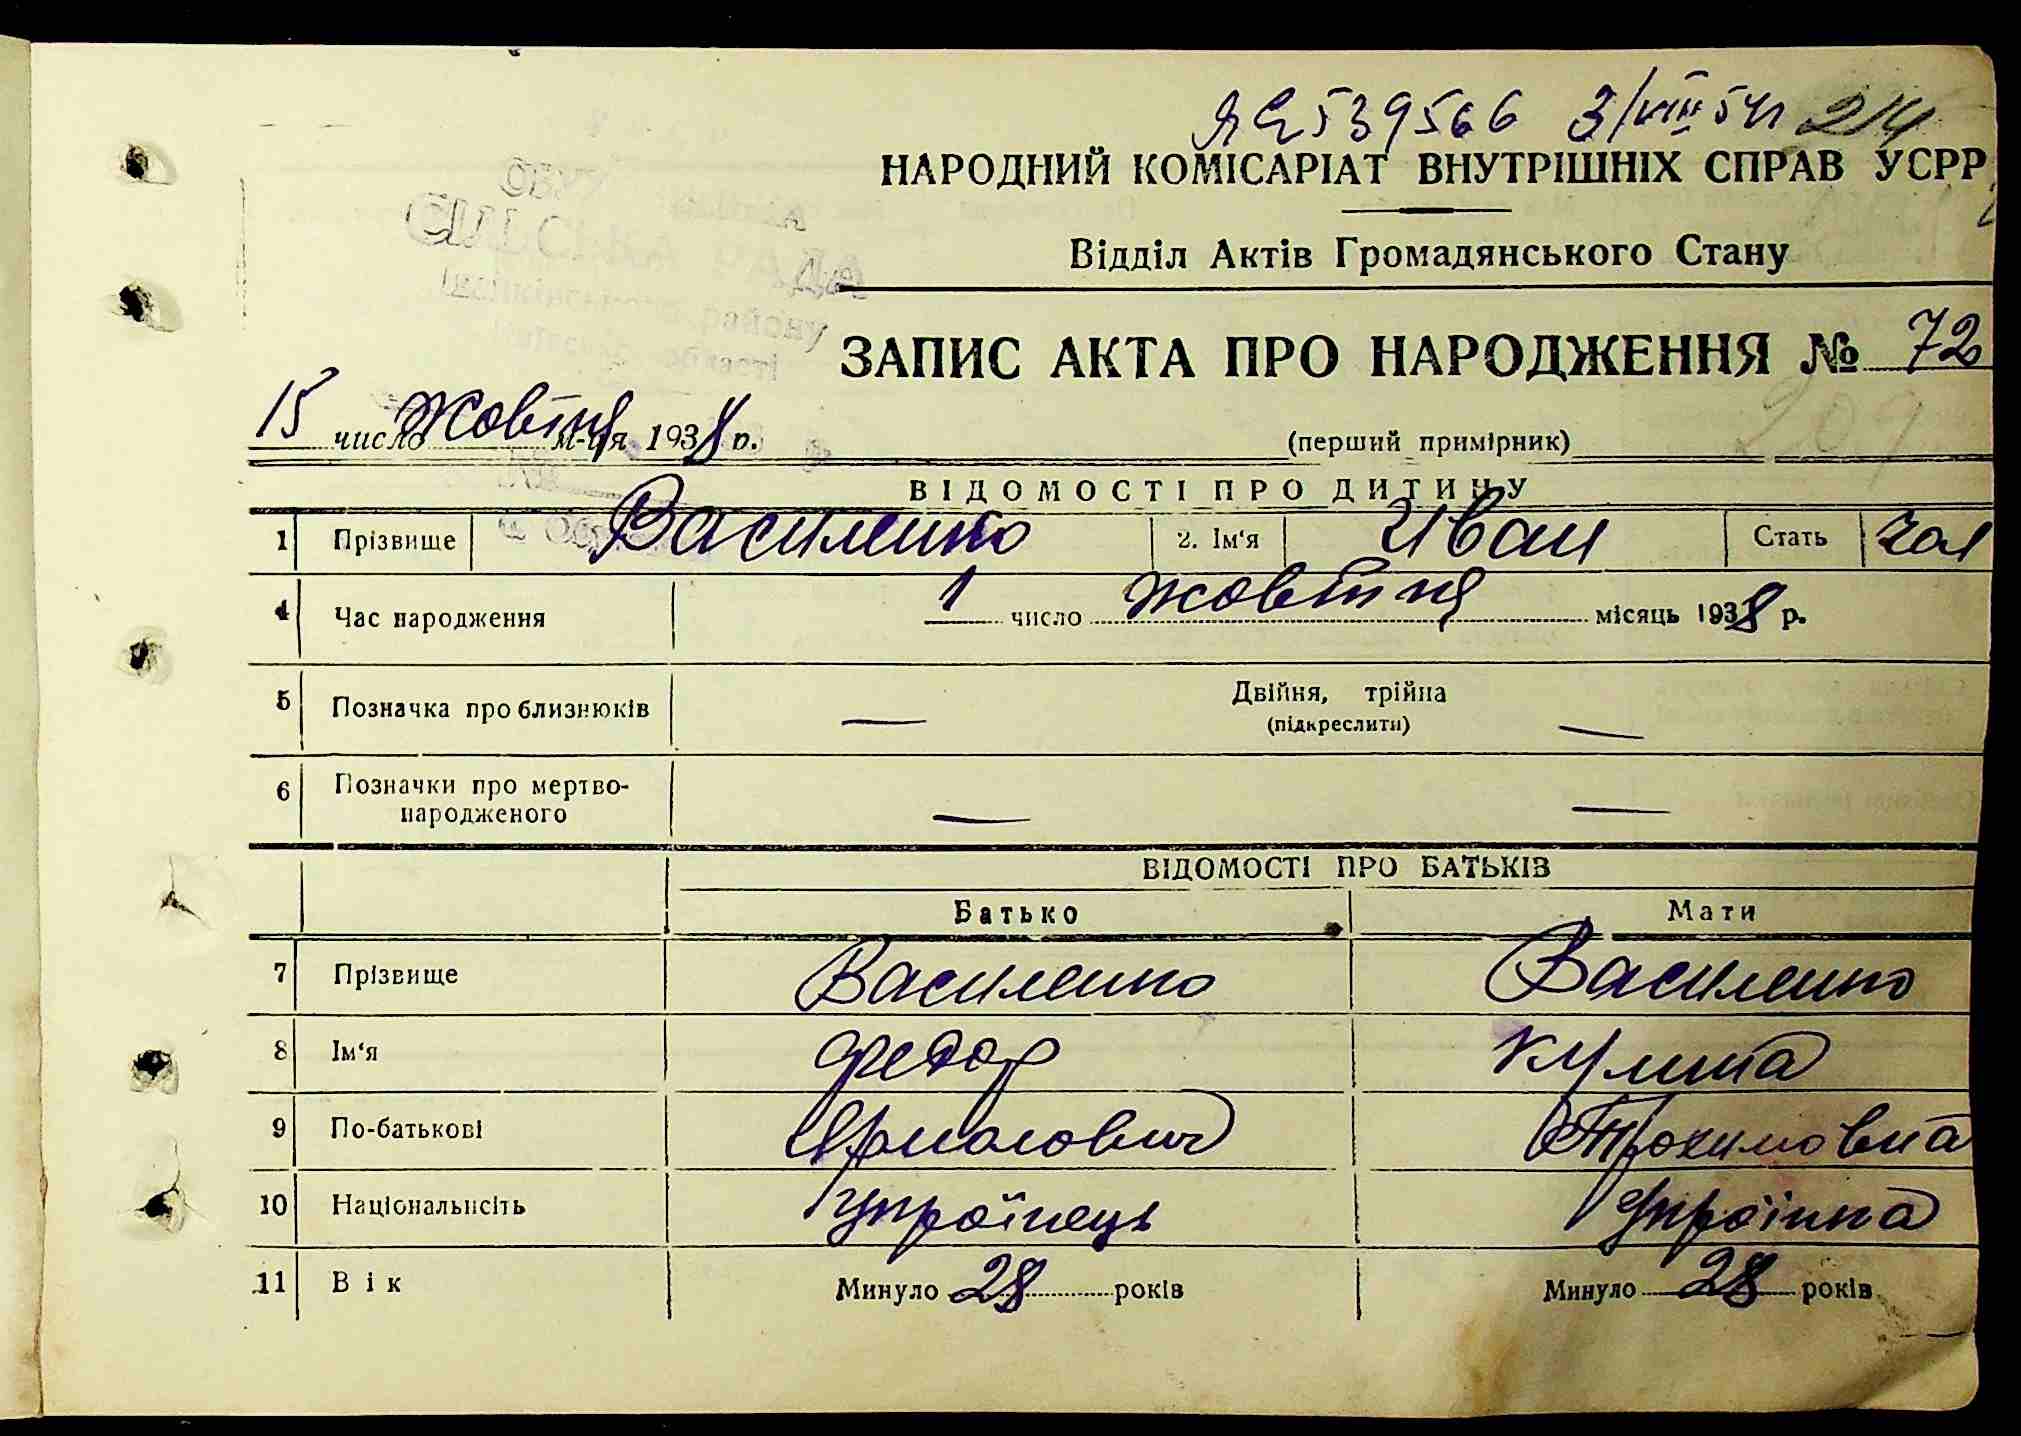 ЯЄ 539566 3/VIII 54 214
НАРОДНИЙ КОМІСАРІАТ ВНУТРІШНІХ СПРАВ УСРР
Відділ Актів Громадянського Стану
СІЛЬСЬКА РАДА
району
області
ЗАПИС АКТА ПРО НАРОДЖЕННЯ № 72
209
15 число Жовтня м-ця 1938 р.
(перший примірник)
ВІДОМОСТІ ПРО ДИТИНУ
1 Прізвище Василенко 2. Ім‘я Иван Стать чол
4 Час народження 1 число жовтня місяць 1938 р.
5 Позначка про близнюків — Двійня, трійна —
(підкреслити)
6 Позначки про мертво-
народженого — —
ВІДОМОСТІ ПРО БАТЬКІВ
Батько Мати
7 Прізвище Василенко Василенко
8 Ім‘я Федор Кулина
9 По-батькові Ярмолович Трохимовна
10 Національність Українець Українка
11 Вік Минуло 28 років Минуло 28 років